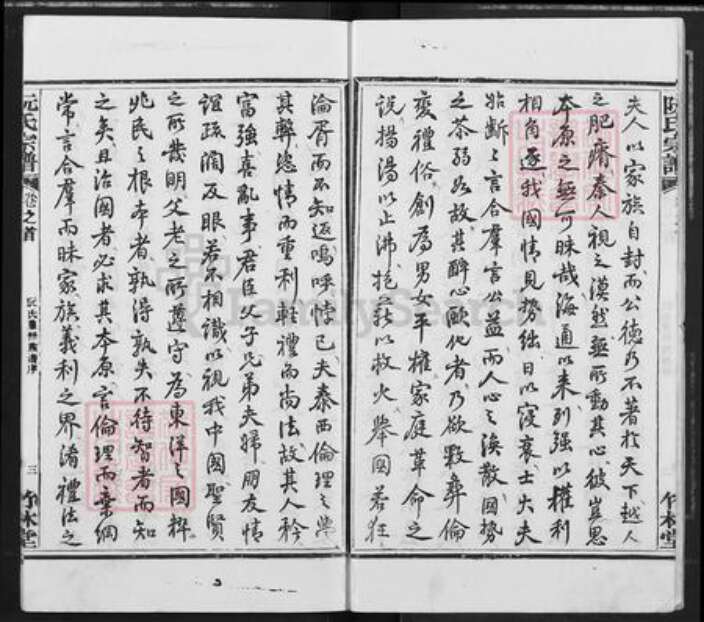 夫人以家族自封而公德乃不著於天下越人
之肥瘠秦人視之漠然無所動其心彼豈思
本原之無可昧哉海通以來列強以權利
相角逐我國情見勢絀日以寖衰士大夫
始斷斷言合羣言公益而人心之渙散國勢
之苶弱如故其醉心歐化者乃欲斁彝倫
變禮俗創為男女平權家庭革命之
說揚湯以止沸抱薪以救火舉國若狂
淪胥而不知返嗚呼悖已夫泰西倫理之學
其弊恣情而重利輕禮而尚法故其人矜
富強喜亂事君臣父子兄弟夫婦朋友情
誼疏濶反眼若不相識以視我中國聖賢
之所幾明父老之所遵守為東洋之國粹
兆民之根本者孰得孰失不待智者而知
之矣且治國者必求其本原言倫理而棄綱
常言合羣而昧家族義利之界淆禮法之
阮氏宗譜
卷之首
三
竹林堂
FamilySearch